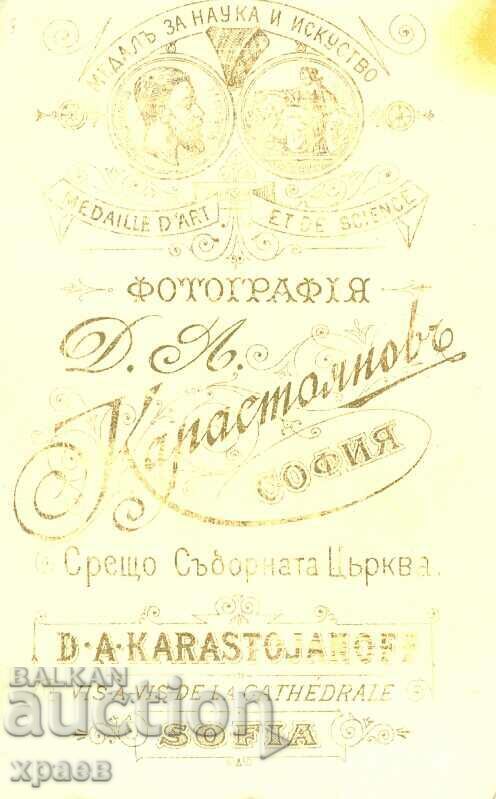 МЕДАЛЪ ЗА НАУКА И ИСКУСТВО
MEDAILLE D'ART ET DE SCIENCE
ФОТОГРАФІЯ
Д. А.
Карастояновъ
СОФИЯ
Срещо Съборната Църква.
D·A·KARASTOJANOFF
VIS-A-VIS DE LA CATHÉDRALE
SOFIA
BALKAN
auction
храев